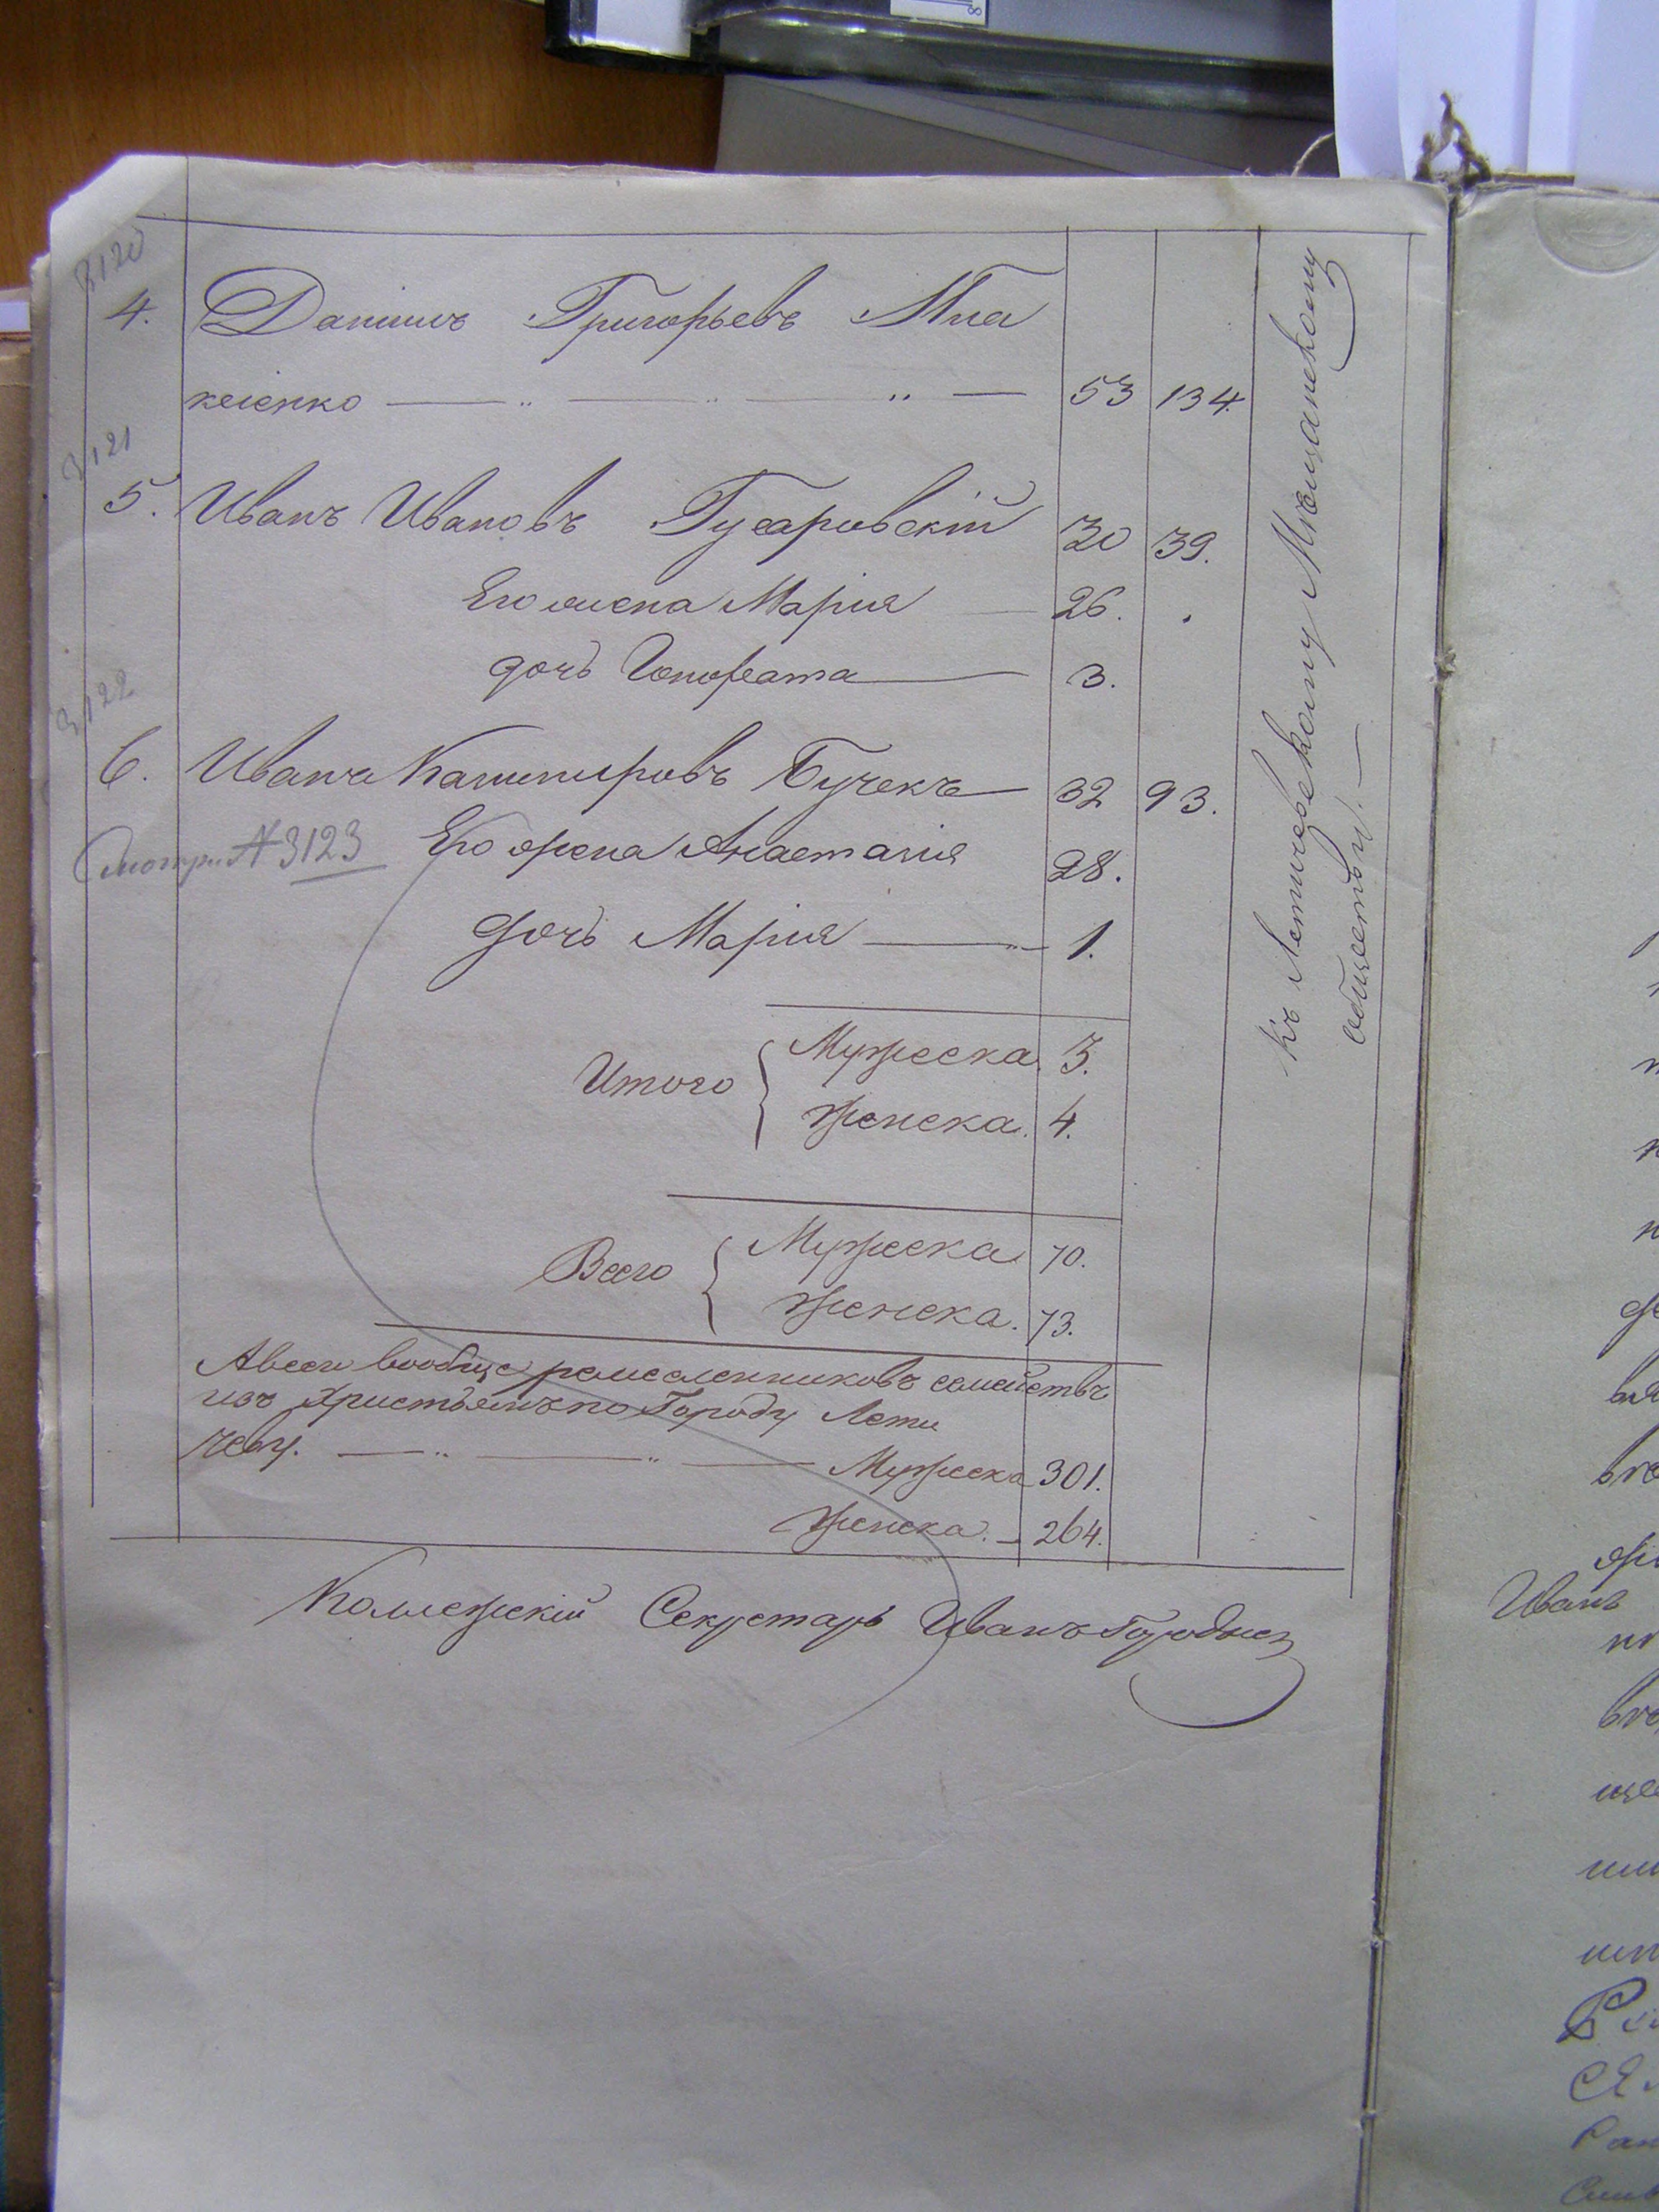 3120
4. Данило Григорьевъ Мна
кеіенко 53 134.
3121
5. Иванъ Ивановъ Гусаровскій 30 39.
Его жена Марія 26.
дочь Гонората 3.
3122
6. Иванъ Казимировъ Бучекъ 32 93.
Смотри № 3123
Его жена Анастазія 28.
дочь Марія 1.
Итого { Мужеска 3.
Женска. 4.
Всего { Мужеска 70.
Женска. 73.
А всех вообще ремесленниковъ семействъ
изъ Христьянъ по Городу Лети
чеву. Мужеска 301.
Женска. 264.
Коллежскій Секретарь Иванъ
Къ Летичевскому Мѣщанскому
обществу.
Иванъ